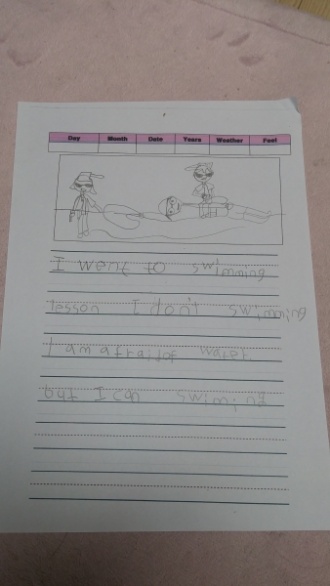 Day Month Date Years Weather Feel
I went to swimming
lesson I don't swimming
I am afraid of water
but I can swiming